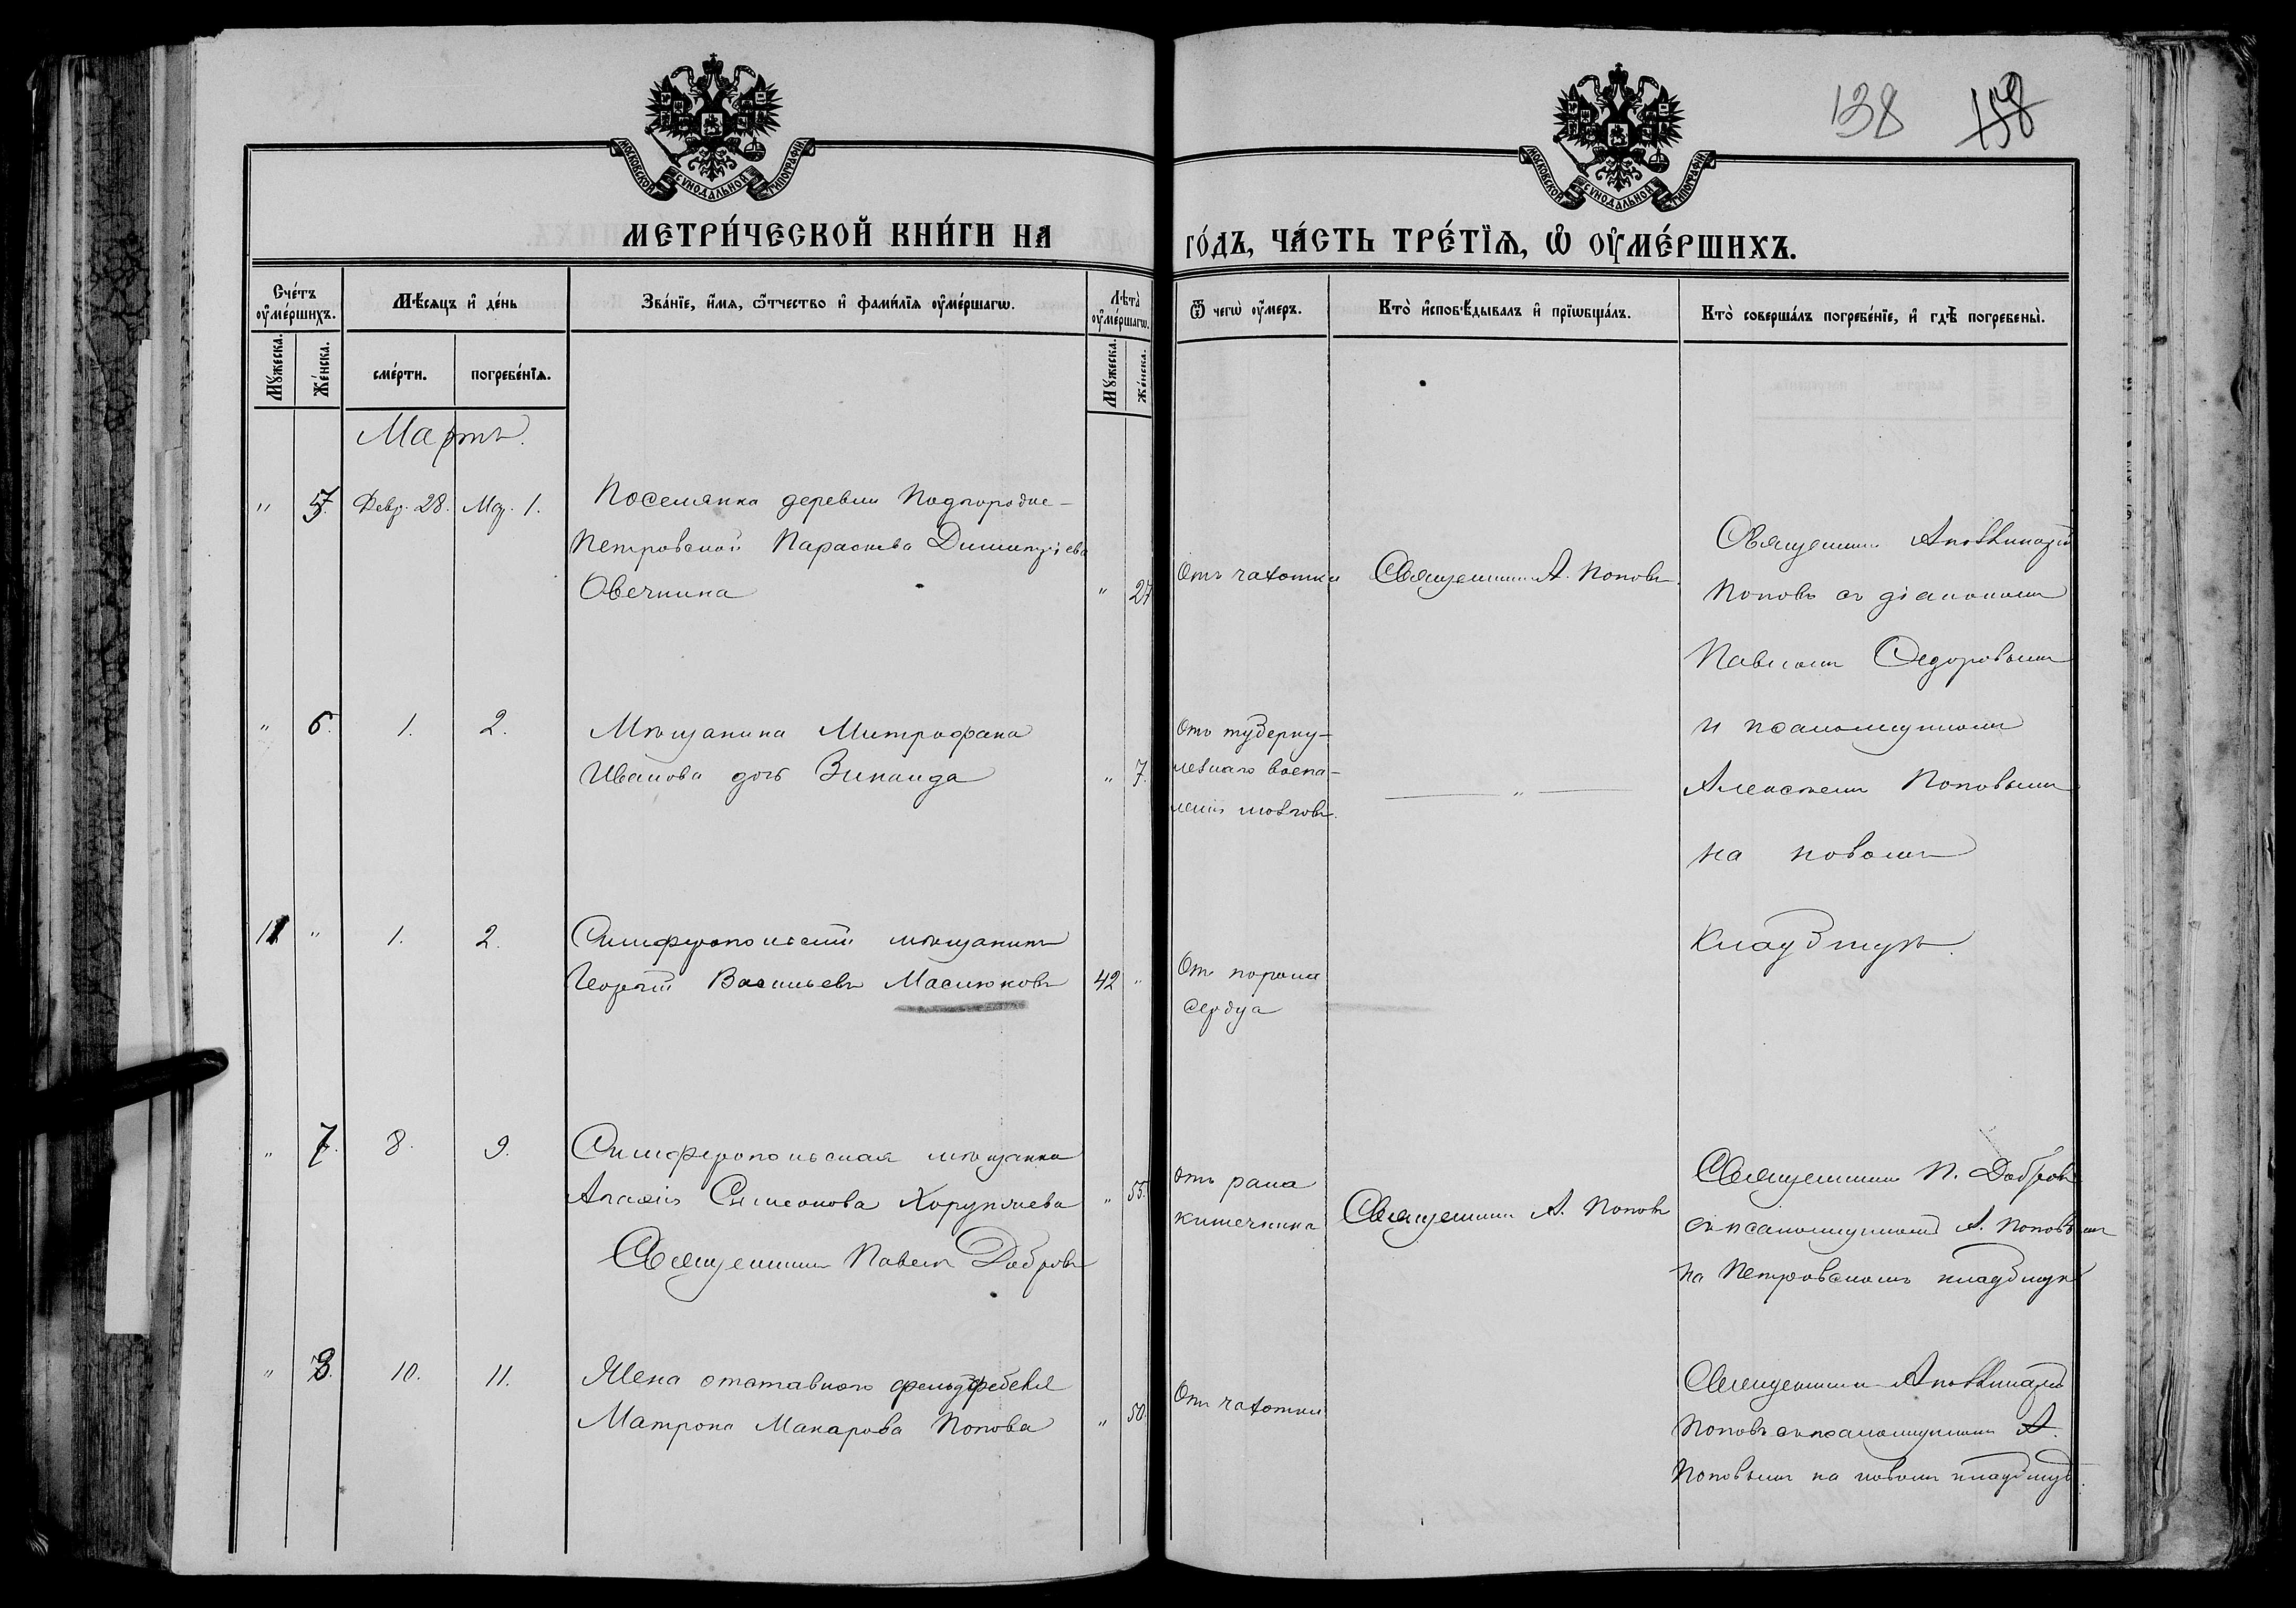 138 158
МОСКОВСКОЙ СѴНОДАЛЬНОЙ ТИПОГРАФІИ
МОСКОВСКОЙ СѴНОДАЛЬНОЙ ТИПОГРАФІИ
МЕТРИ́ЧЕСКОЙ КНИ́ГИ НА
ГО́ДЪ, ЧА́СТЬ ТРЕ́ТЇѦ, Ѡ҆ ОУ҆МЕ́РШИХЪ.
Сче́тъ оу҆ме́ршихъ.
Мѣ́сѧцъ и҆ де́нь
Зва́нїе, и҆́мѧ, ѻ҆́тчество и҆ фами́лїѧ оу҆ме́ршагѡ.
Лѣта̀ оу҆ме́ршагѡ.
Ѿ чегѡ̀ оу҆́меръ.
Кто̀ и҆сповѣ́дывалъ и҆ прїѡбща́лъ.
Кто̀ соверша́лъ погребе́нїе, и҆ гдѣ̀ погребены̀.
Мꙋ́жеска.
Же́нска.
сме́рти.
погребе́нїѧ.
Мꙋ́жеска.
Же́нска.
Мартъ.
" 5. Февр. 28. Мар. 1. Поселянка деревни Подгородне-
Петровской Параскева Димитріева
Овечкина " 27
Отъ чахотки
Священникъ А. Поповъ.
Священникъ Аполлинарій
Поповъ съ діакономъ
Павломъ Ѳедоровымъ
и псаломщикомъ
Алексѣемъ Поповымъ
на новомъ
кладбищѣ.
" 6. 1. 2. Мѣщанина Митрофана
Иванова дочь Зинаида " 7.
Отъ туберку-
лезнаго воспа-
ленія мозговъ.
"
11 " 1. 2. Симферопольскій мѣщанинъ
Георгій Васильевъ Маслюковъ 42 "
Отъ порока
сердца
" 7. 8. 9. Симферопольская мѣщанка
Симеонова " 55.
Священникъ Павелъ Добровъ
отъ рака
кишечника
Священникъ А. Поповъ
Священникъ П. Добровъ
съ псаломщикомъ А. Поповымъ
на Петровскомъ кладбищѣ
" 8. 10. 11. Жена отставного фельдфебеля
Матрона Макарова Попова " 50.
Отъ чахотки
Священникъ Аполлинарій
Поповъ съ псаломщикомъ А.
Поповымъ на новомъ кладбищѣ.